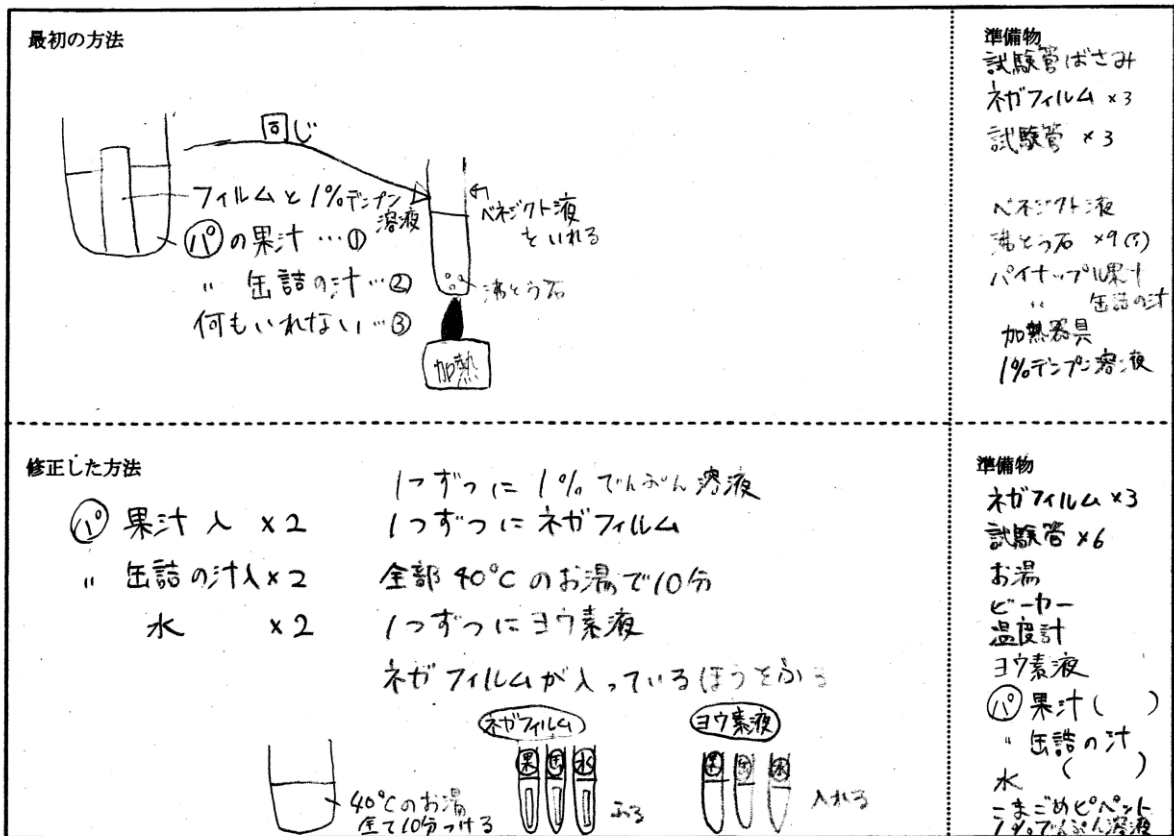 最初の方法
同じ
フィルムと1%デンプン溶液
パの果汁…①
〃 缶詰の汁…②
何もいれない…③
ベネジクト液をいれる
沸とう石
加熱
準備物
試験管ばさみ
ネガフィルム ×3
試験管 ×3
ベネジクト液
沸とう石 ×9(?)
パイナップル果汁
〃 缶詰の汁
加熱器具
1%デンプン溶液
修正した方法
パ 果汁入 ×2
〃 缶詰の汁入×2
水 ×2
1つずつに1%でんぷん溶液
1つずつにネガフィルム
全部40℃のお湯で10分
1つずつにヨウ素液
ネガフィルムが入っているほうをふる
40℃のお湯
全て10分つける
ネガフィルム
果 缶 水
ふる
ヨウ素液
果 缶 水
入れる
準備物
ネガフィルム×3
試験管×6
お湯
ビーカー
温度計
ヨウ素液
パ 果汁( )
〃 缶詰の汁
( )
水
こまごめピペット
1%でんぷん溶液